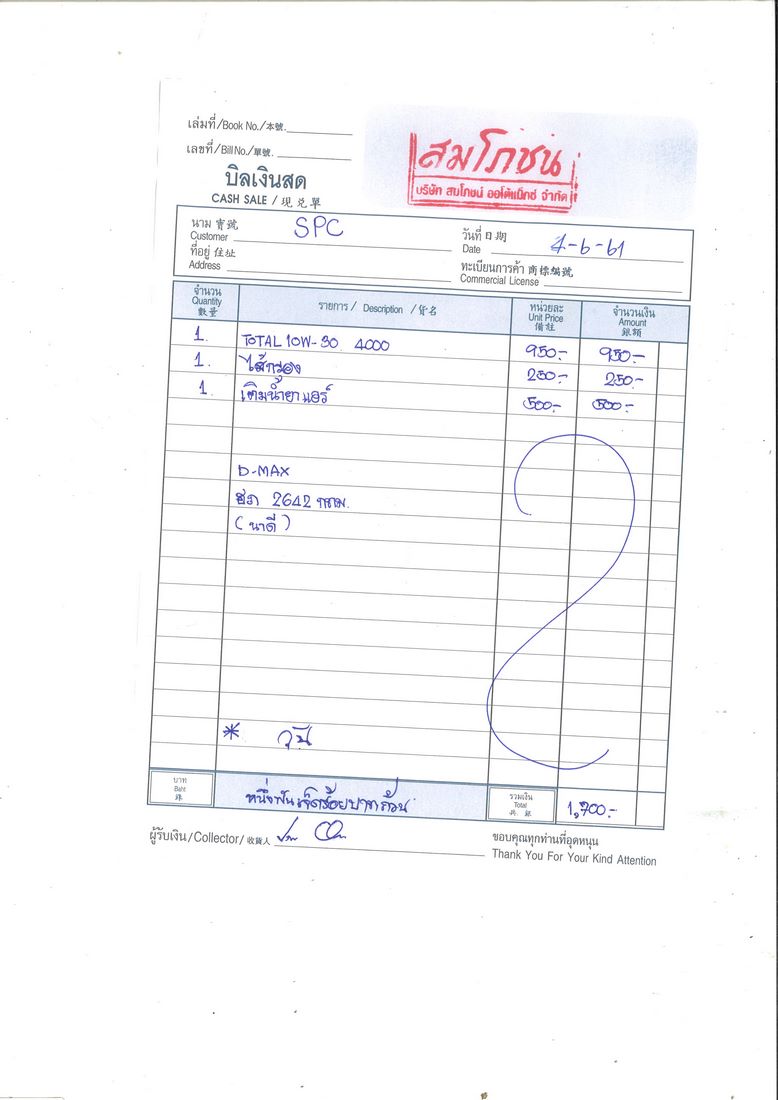 เล่มที่/Book No./本號.
เลขที่/Bill No./單號.
บิลเงินสด
CASH SALE / 現兌單
สมโภชน์
บริษัท สมโภชน์ ออโต้แม็กซ์ จำกัด
นาม 寶號 Customer SPC
วันที่ 日期 Date 4-6-61
ที่อยู่ 住址 Address
ทะเบียนการค้า 商標編號 Commercial License
จำนวน Quantity 數量 รายการ / Description / 貨名 หน่วยละ Unit Price 備註 จำนวนเงิน Amount 銀額
1. TOTAL 10W-30 4000 950.- 950.-
1. ไส้กรอง 250.- 250.-
1 เติมน้ำยาแอร์ 500.- 500.-
D-MAX
2642 กทม.
(นาดี)
*
บาท Baht 銖 หนึ่งพันเจ็ดร้อยบาทถ้วน รวมเงิน Total 共銖 1,700.-
ผู้รับเงิน/Collector/收貨人
ขอบคุณทุกท่านที่อุดหนุน
Thank You For Your Kind Attention